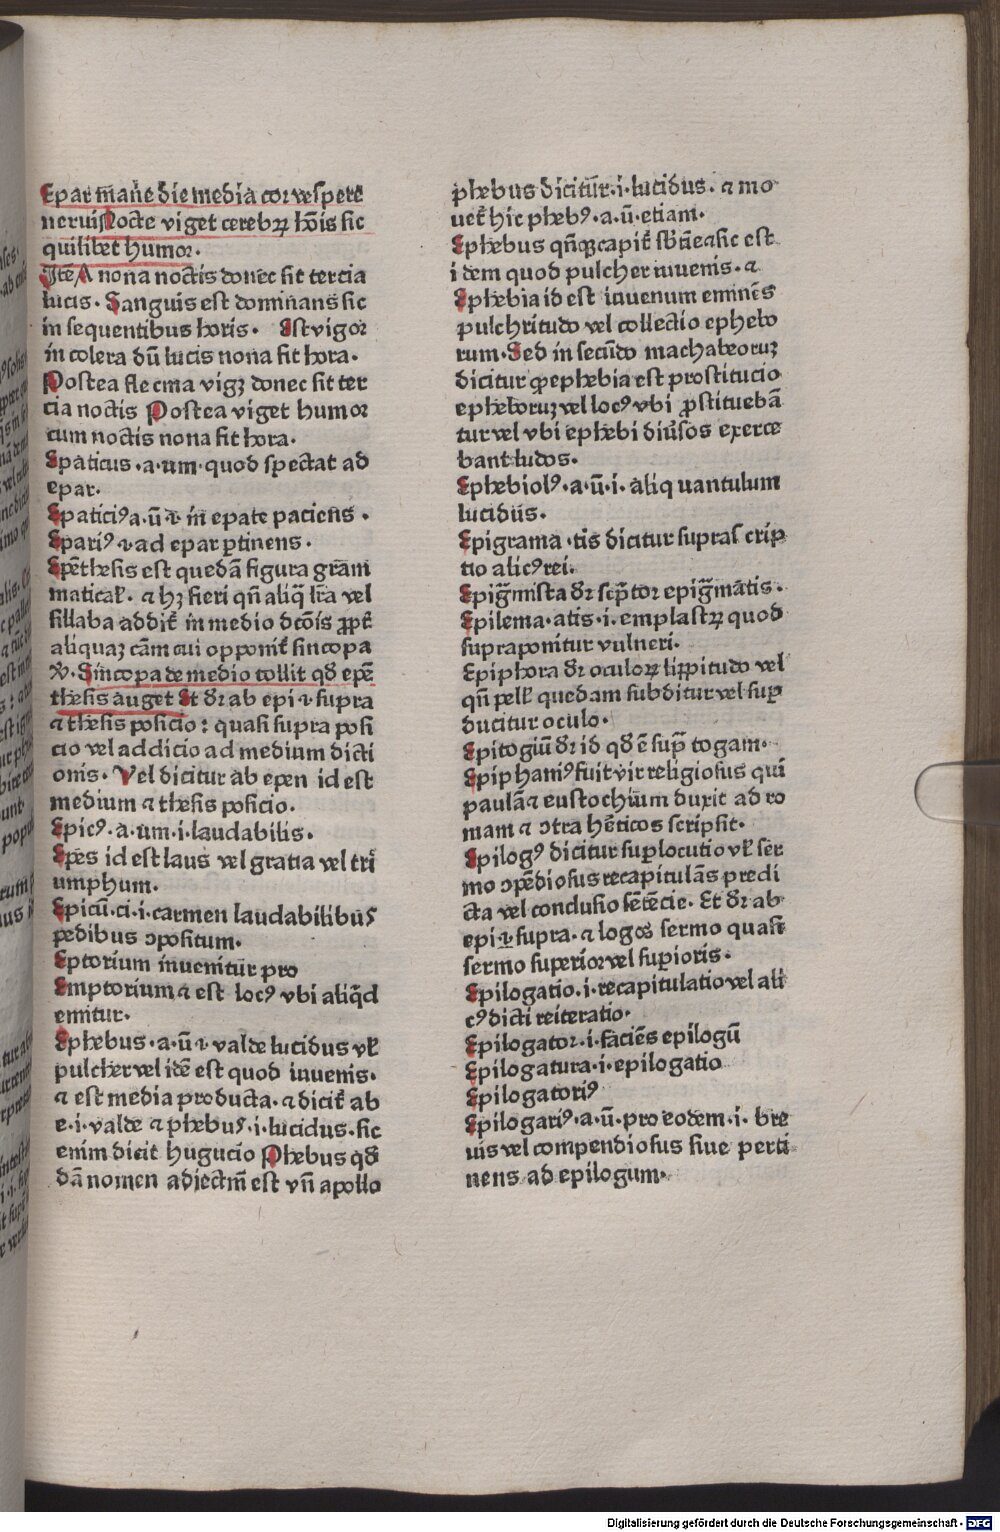 Epar māne die media cor vespere
neruis Nocte viget cerebrꝝ hoīs sic
quilibet humor.
Itē A nona noctis donec sit tercia
lucis. Sanguis est dominans sic
in sequentibus horis. Est vigor
in colera dū lucis nona sit hora.
Postea flecma vigꝫ donec sit ter
cia noctis Postea viget humor
cum noctis nona fit hora.
Epaticus .a.um. quod spectat ad
epar.
Epaticiꝰ a.ū.i. in epate paciens.
Epariꝰ .i. ad epar ꝑtinens.
Epēthesis est quedā figura gram
matical'. ⁊ hꝫ fieri qn̄ aliq̄ lr̄a vel
sillaba addit' in medio dc̄ōis ꝓpt'
aliquaꝫ cām cui opponit' sincopa
v̓. Sincopa de medio tollit qđ epē
thesis auget Et dr̄ ab epi .i. supra
⁊ thesis posicio: quasi supra posi
cio vel addicio ad medium dicti
onis. Vel dicitur ab epen id est
medium ⁊ thesis posicio.
Epicꝰ.a.um.i.laudabilis.
Epes id est laus vel gratia vel tri
umphum.
Epicū.ci.i.carmen laudabilibus
pedibus ꝯpositum.
Eptorium inuenitur pro
Emptorium ⁊ est locꝰ vbi aliqd
emitur.
Ephebus.a.ū.i.valde lucidus vl'
pulcher vel idē est quod iuuenis.
⁊ est media producta. ⁊ dicit' ab
e.i.valde ⁊ phebus.i.lucidus.sic
enim dicit hugucio Phebus qđ
dā nomen adiectm̄ est vn̄ apollo
phebus dicitur.i.lucidus. ⁊ mo
uet' hic phebꝰ.a.ū.etiam.
Ephebus qn̄qꝫ capit' sb̄tīe ⁊ sic est
idem quod pulcher iuuenis. ⁊
Ephebia id est iuuenum eminēs
pulchritudo vel collectio ephebo
rum. Sed in secūdo machabeoruꝫ
dicitur ꝙ ephebia est prostitucio
epheboruꝫ vel locꝰ vbi ꝓstituebā
tur vel vbi ephebi diūsos exerce
bant ludos.
Ephebiolꝰ.a.ū.i. aliquantulum
lucidus.
Epigrama .tis dicitur suprascrip
tio alicꝰ rei.
Epigr̄mista dr̄ scp̄tor epigr̄matis.
Epilema.atis.i.emplastrꝝ quod
supraponitur vulneri.
Epiphora dr̄ oculoꝝ lippitudo vel
qn̄ pell' quedam subditur vel suꝑ
ducitur oculo.
Epitogiū dr̄ id qđ ē sup̄ togam.
Epiphaniꝰ fuit vir religiosus qui
paulā ⁊ eustochium duxit ad ro
mam ⁊ ꝯtra hēticos scripsit.
Epilogꝰ dicitur suꝑlocutio vl' ser
mo ꝯpēdiosus recapitulās predi
cta vel conclusio sētēcie. Et dr̄ ab
epi .i. supra. ⁊ logos sermo quasi
sermo superior vel suꝑioris.
Epilogatio.i.recapitulatio vel ali
cꝰ dicti reiteratio.
Epilogator.i.faciēs epilogū
Epilogatura.i.epilogatio
Epilogatoriꝰ
Epilogariꝰ.a.ū.pro eodem.i. bre
uis vel compendiosus siue perti
nens ad epilogum.
Digitalisierung gefördert durch die Deutsche Forschungsgemeinschaft - DFG